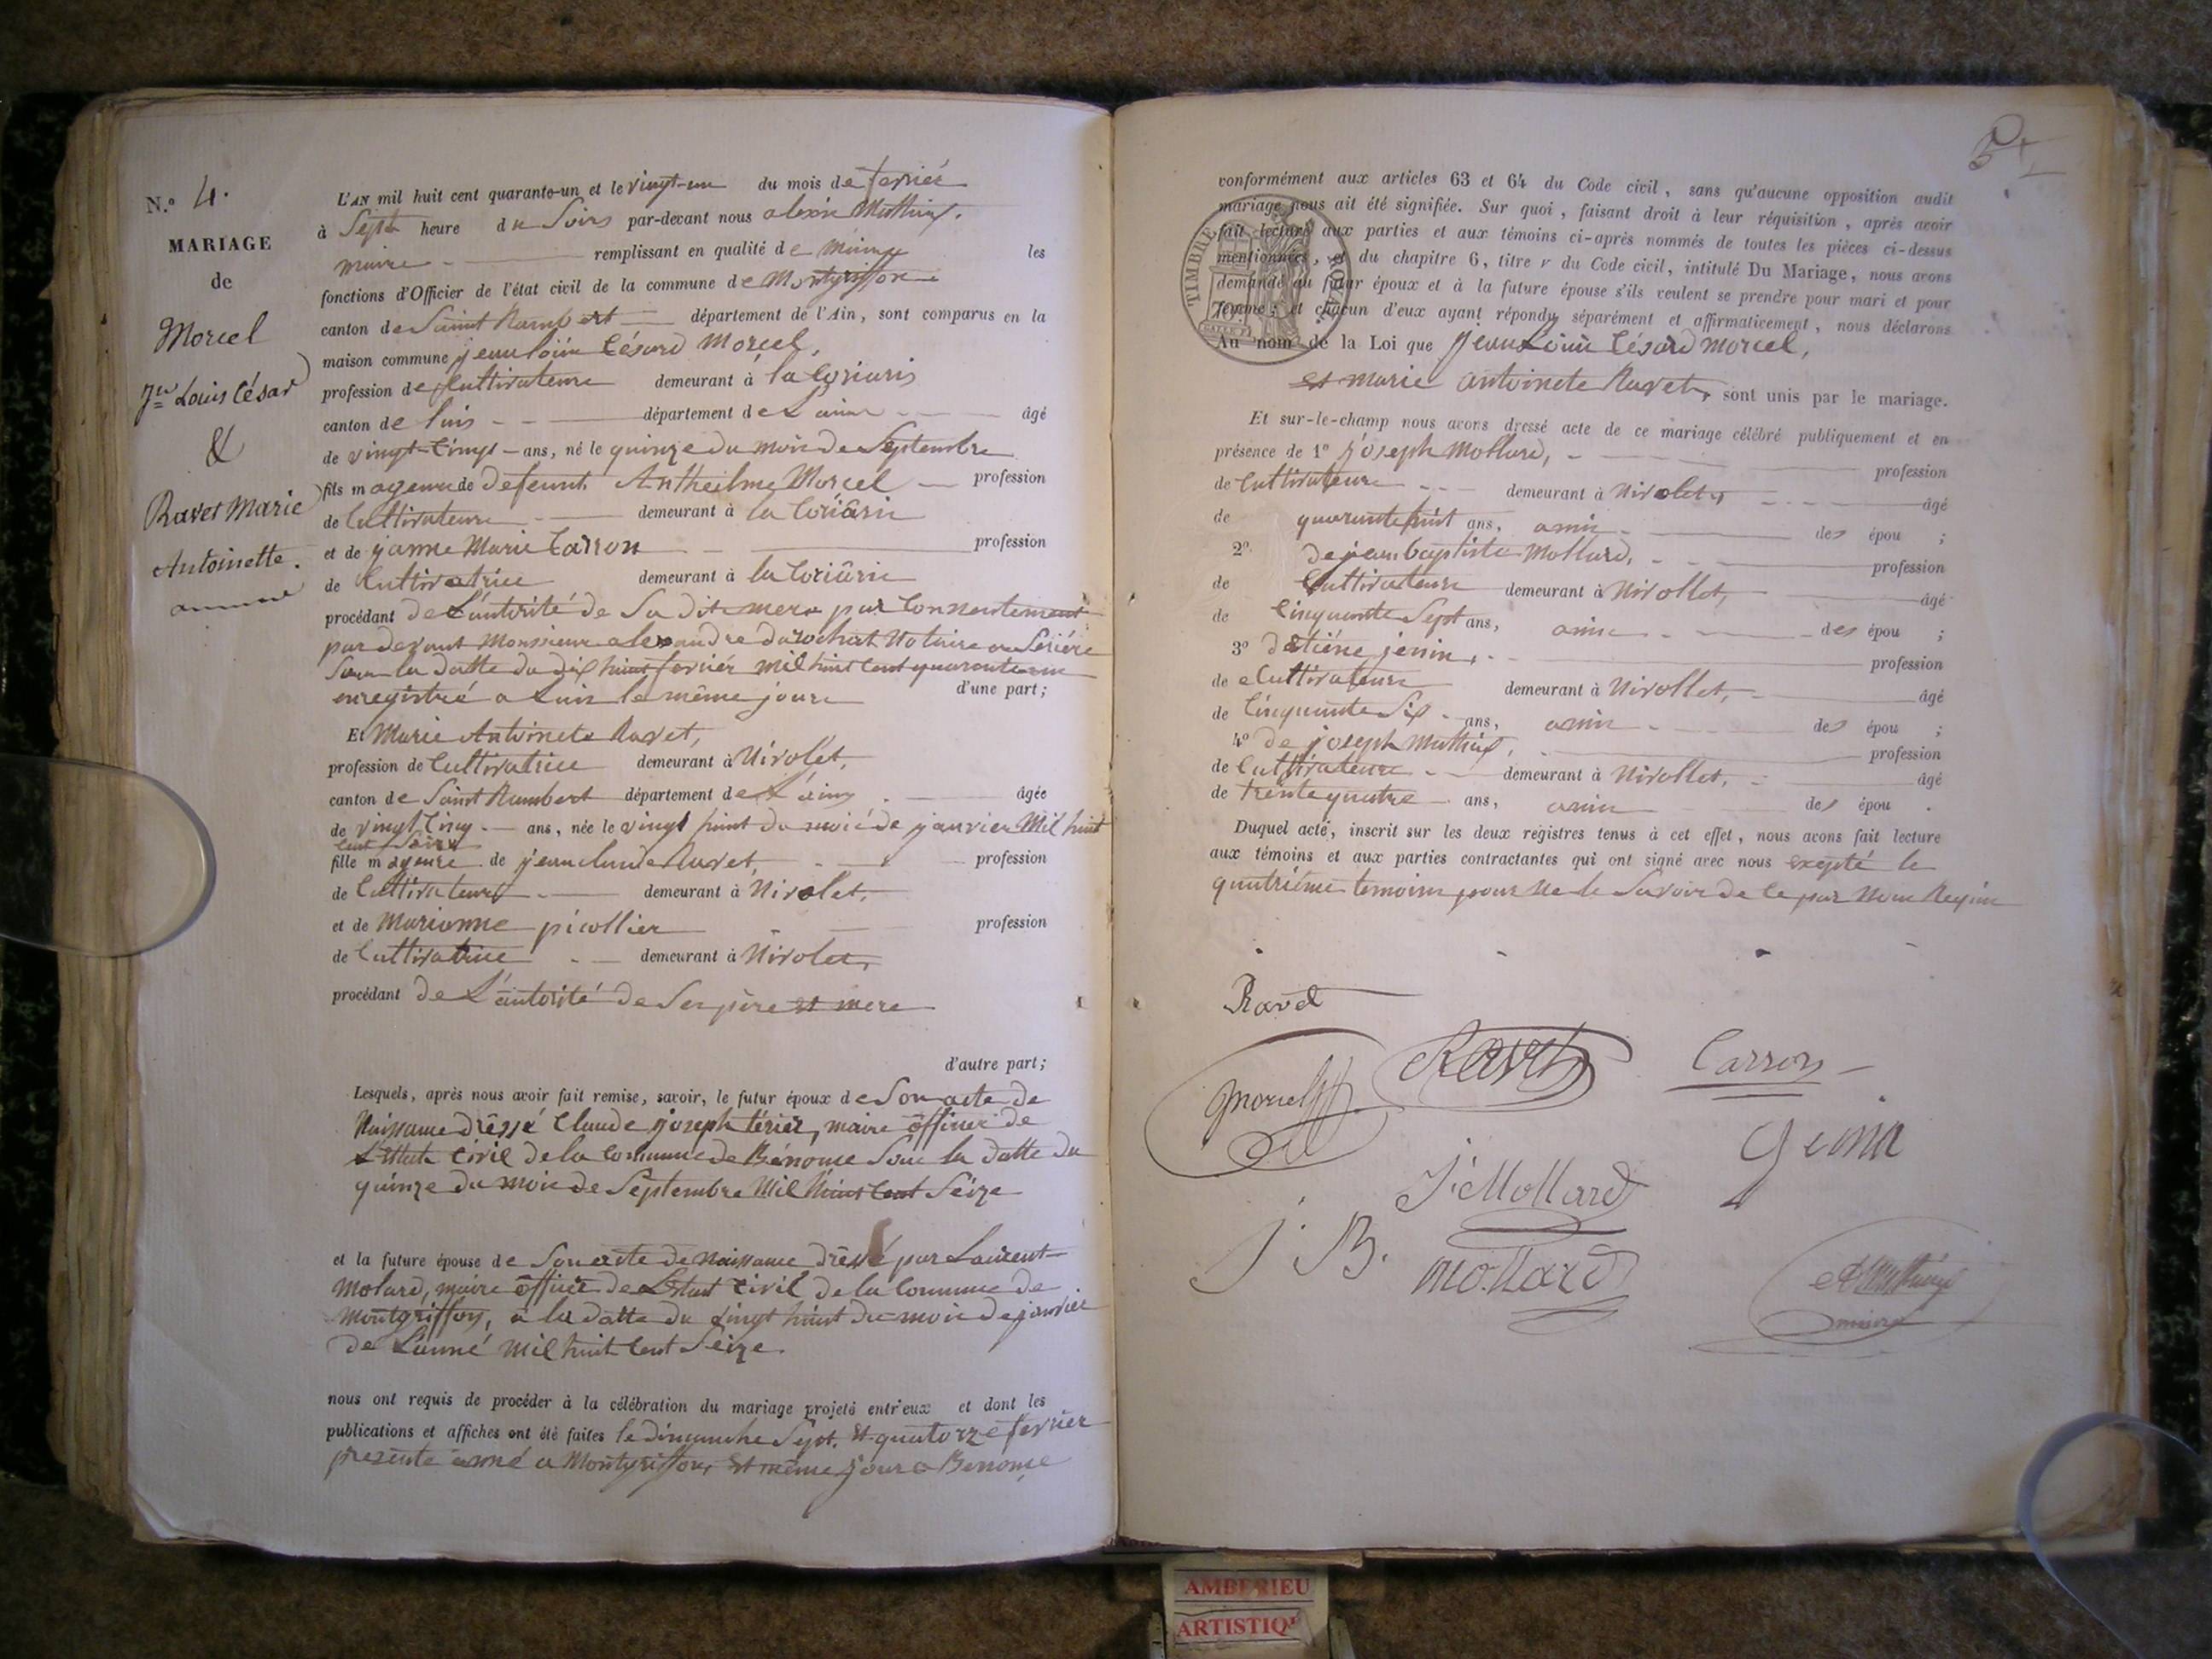 N.° 4.
MARIAGE
de
Morcel
Jn Louis César
&
Ravet Marie
Antoinette.
L'AN mil huit cent quarante-un et le vingt-un du mois de fevriér
à Sept heure du Soirs par-devant nous alexis Mathieux,
maire remplissant en qualité de les
fonctions d'Officier de l'état civil de la commune de Montgriffon
canton de Saint Rambert département de l'Ain, sont comparus en la
maison commune jean loüis Césard Morcel,
profession de Cultivateure demeurant à la
canton de luis département de L'ain âgé
de vingt-Cinqt ans, né le quinze du mois de Septembre
fils mageure de defeunt Anthelme Morcel profession
de Cultivateure demeurant à la
et de janne Marie Carron profession
de Cultivatrice demeurant à la
procédant de L'autorité de Sa dite mere par Consentement
par devant Monsieure alexandre durochat Notaire a Seriére
Sous la datte du dix huint fevriér mil huint Cent quarante un
enregistré a Luis le même joure d'une part;
Et Marie Antoinete Ravet,
profession de Cultivatrice demeurant à Nivolet,
canton de Saint Rambert département de L'ain âgée
de vingt Cinq ans, née le vingt huint du mois de janvier Mil huit
Cent Seize
fille mageure de jean claude Ravet, profession
de Cultivateure demeurant à Nivolet,
et de Marianne picollier profession
de Cultivatrice demeurant à Nivolet,
procédant de L'autorité de Ses père et mere
d'autre part;
Lesquels, après nous avoir fait remise, savoir, le futur époux de Son acte de
Naissance drêssé Claude joseph tériér, maire officier de
L'état Civil de la Commune de Bénonce Sous la datte du
quinze du mois de Septembre Mil huint Cent Seize
et la future épouse de Son acte de Naissance drêssé par Laurent
Molard, maire officié de L'état Civil de la Commune de
Montgriffon, a la datte du vingt huint du mois de janvier
de L'anné Mil huit Cent Seize
nous ont requis de procéder à la célébration du mariage projeté entr'eux et dont les
publications et affiches ont été faites le dimanche Sept. et quatorze fevrier
presente anné a Montgriffon, et même joure a Benonce
conformément aux articles 63 et 64 du Code civil, sans qu'aucune opposition audit
mariage nous ait été signifiée. Sur quoi, faisant droit à leur réquisition, après avoir
fait lecture aux parties et aux témoins ci-après nommés de toutes les pièces ci-dessus
mentionnées, et du chapitre 6, titre v du Code civil, intitulé Du Mariage, nous avons
demandé au futur époux et à la future épouse s'ils veulent se prendre pour mari et pour
femme; et chacun d'eux ayant répondu séparément et affirmativement, nous déclarons
Au nom de la Loi que jean Loüis Césard Morcel,
et marie antoinete Ravet, sont unis par le mariage.
TIMBRE ROYAL
Et sur-le-champ nous avons dressé acte de ce mariage célébré publiquement et en
présence de 1° joseph Mollard, profession
de Cultivateure demeurant à Nivolet, âgé
de quarante huit ans, amis des épou ;
2° de jean baptiste Mollard, profession
de Cultivateure demeurant à Nivollet, âgé
de Cinquante Sept ans, amis des épou ;
3° détiéne jenin, profession
de Cultivateure demeurant à Nivollet, âgé
de Cinquante Six ans, amis des épou ;
4° de joseph Mathieux, profession
de Cultivateure demeurant à Nivollet, âgé
de trente quatre ans, amis des épou .
Duquel acte, inscrit sur les deux registres tenus à cet effet, nous avons fait lecture
aux témoins et aux parties contractantes qui ont signé avec nous exepté le
quatriême temoins pour Ne le Savoire de Ce par Nous Requis
Ravet
Morcel Ravet Carron
Genin
J. Mollard
J. B. Mollard
A Mathieux
maire
AMBERIEU
ARTISTIQ